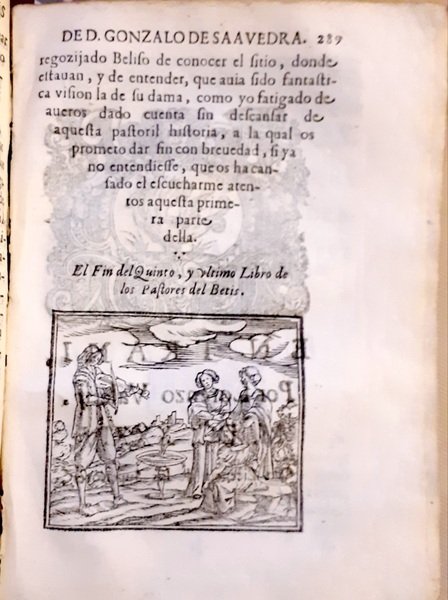 DE D. GONZALO DE SAAVEDRA. 289
regozijado Beliso de conocer el sitio, donde
estauan, y de entender, que auia sido fantasti-
ca vision la de su dama, como yo fatigado de
aueros dado cuenta sin descansar de
aquesta pastoril historia, a la qual os
prometo dar fin con breuedad, si ya
no entendiesse, que os ha can-
sado el escucharme aten-
tos aquesta prime-
ra parte
della.
El Fin del Quinto, y vltimo Libro de
los Pastores del Betis.